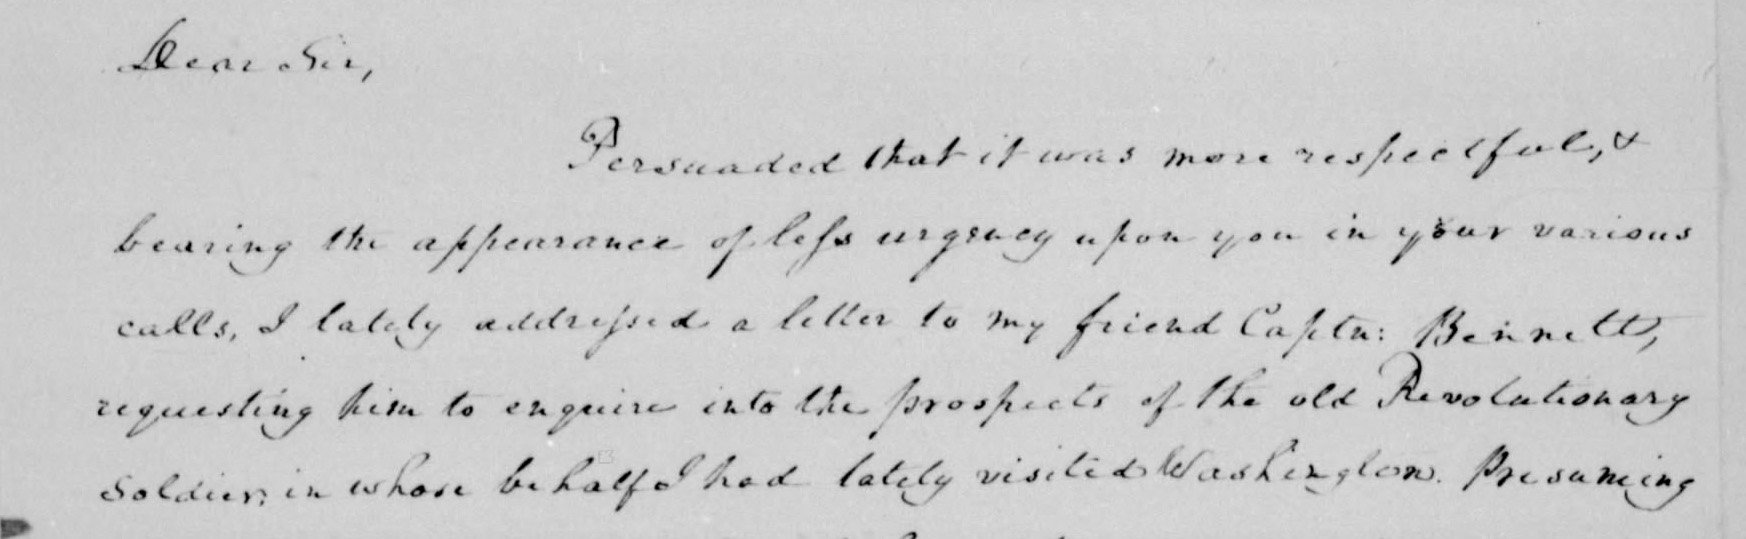 Dear Sir,
Persuaded that it was more respectful, &
bearing the appearance of less urgency upon you in your various
calls, I lately addressed a letter to my friend Captn: Bennett,
requesting him to enquire into the prospects of the old Revolutionary
Soldier, in whose behalf I had lately visited Washington. Presuming